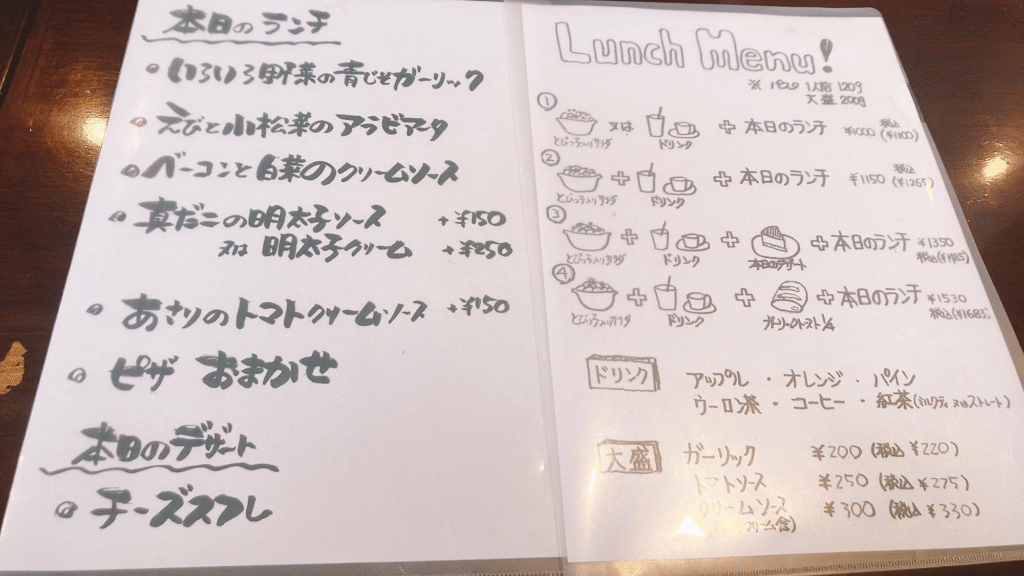 本日のランチ
いろいろ野菜の青じそガーリック
えびと小松菜のアラビアータ
ベーコンと白菜のクリームソース
真だこの明太子ソース +¥150
又は 明太子クリーム +¥250
あさりのトマトクリームソース +¥150
ピザ おまかせ
本日のデザート
チーズスフレ
Lunch Menu!
※ パスタ 1人前 120g
大盛 200g
① 又は + 本日のランチ ¥1000 税込(¥1100)
とびっ子入りサラダ ドリンク
② + + 本日のランチ ¥1150 税込(¥1265)
とびっ子入りサラダ ドリンク
③ + + + 本日のランチ ¥1350 税込(¥1485)
とびっ子入りサラダ ドリンク 本日のデザート
④ + + + 本日のランチ ¥1530 税込(¥1683)
とびっ子入りサラダ ドリンク ガーリックトースト1/4
ドリンク アップル ・ オレンジ ・ パイン
ウーロン茶 ・ コーヒー ・ 紅茶(ミルクティ 又はストレート)
大盛 ガーリック ¥200 (税込 ¥220)
トマトソース ¥250 (税込 ¥275)
クリームソース ¥300 (税込 ¥330)
クリーム含)